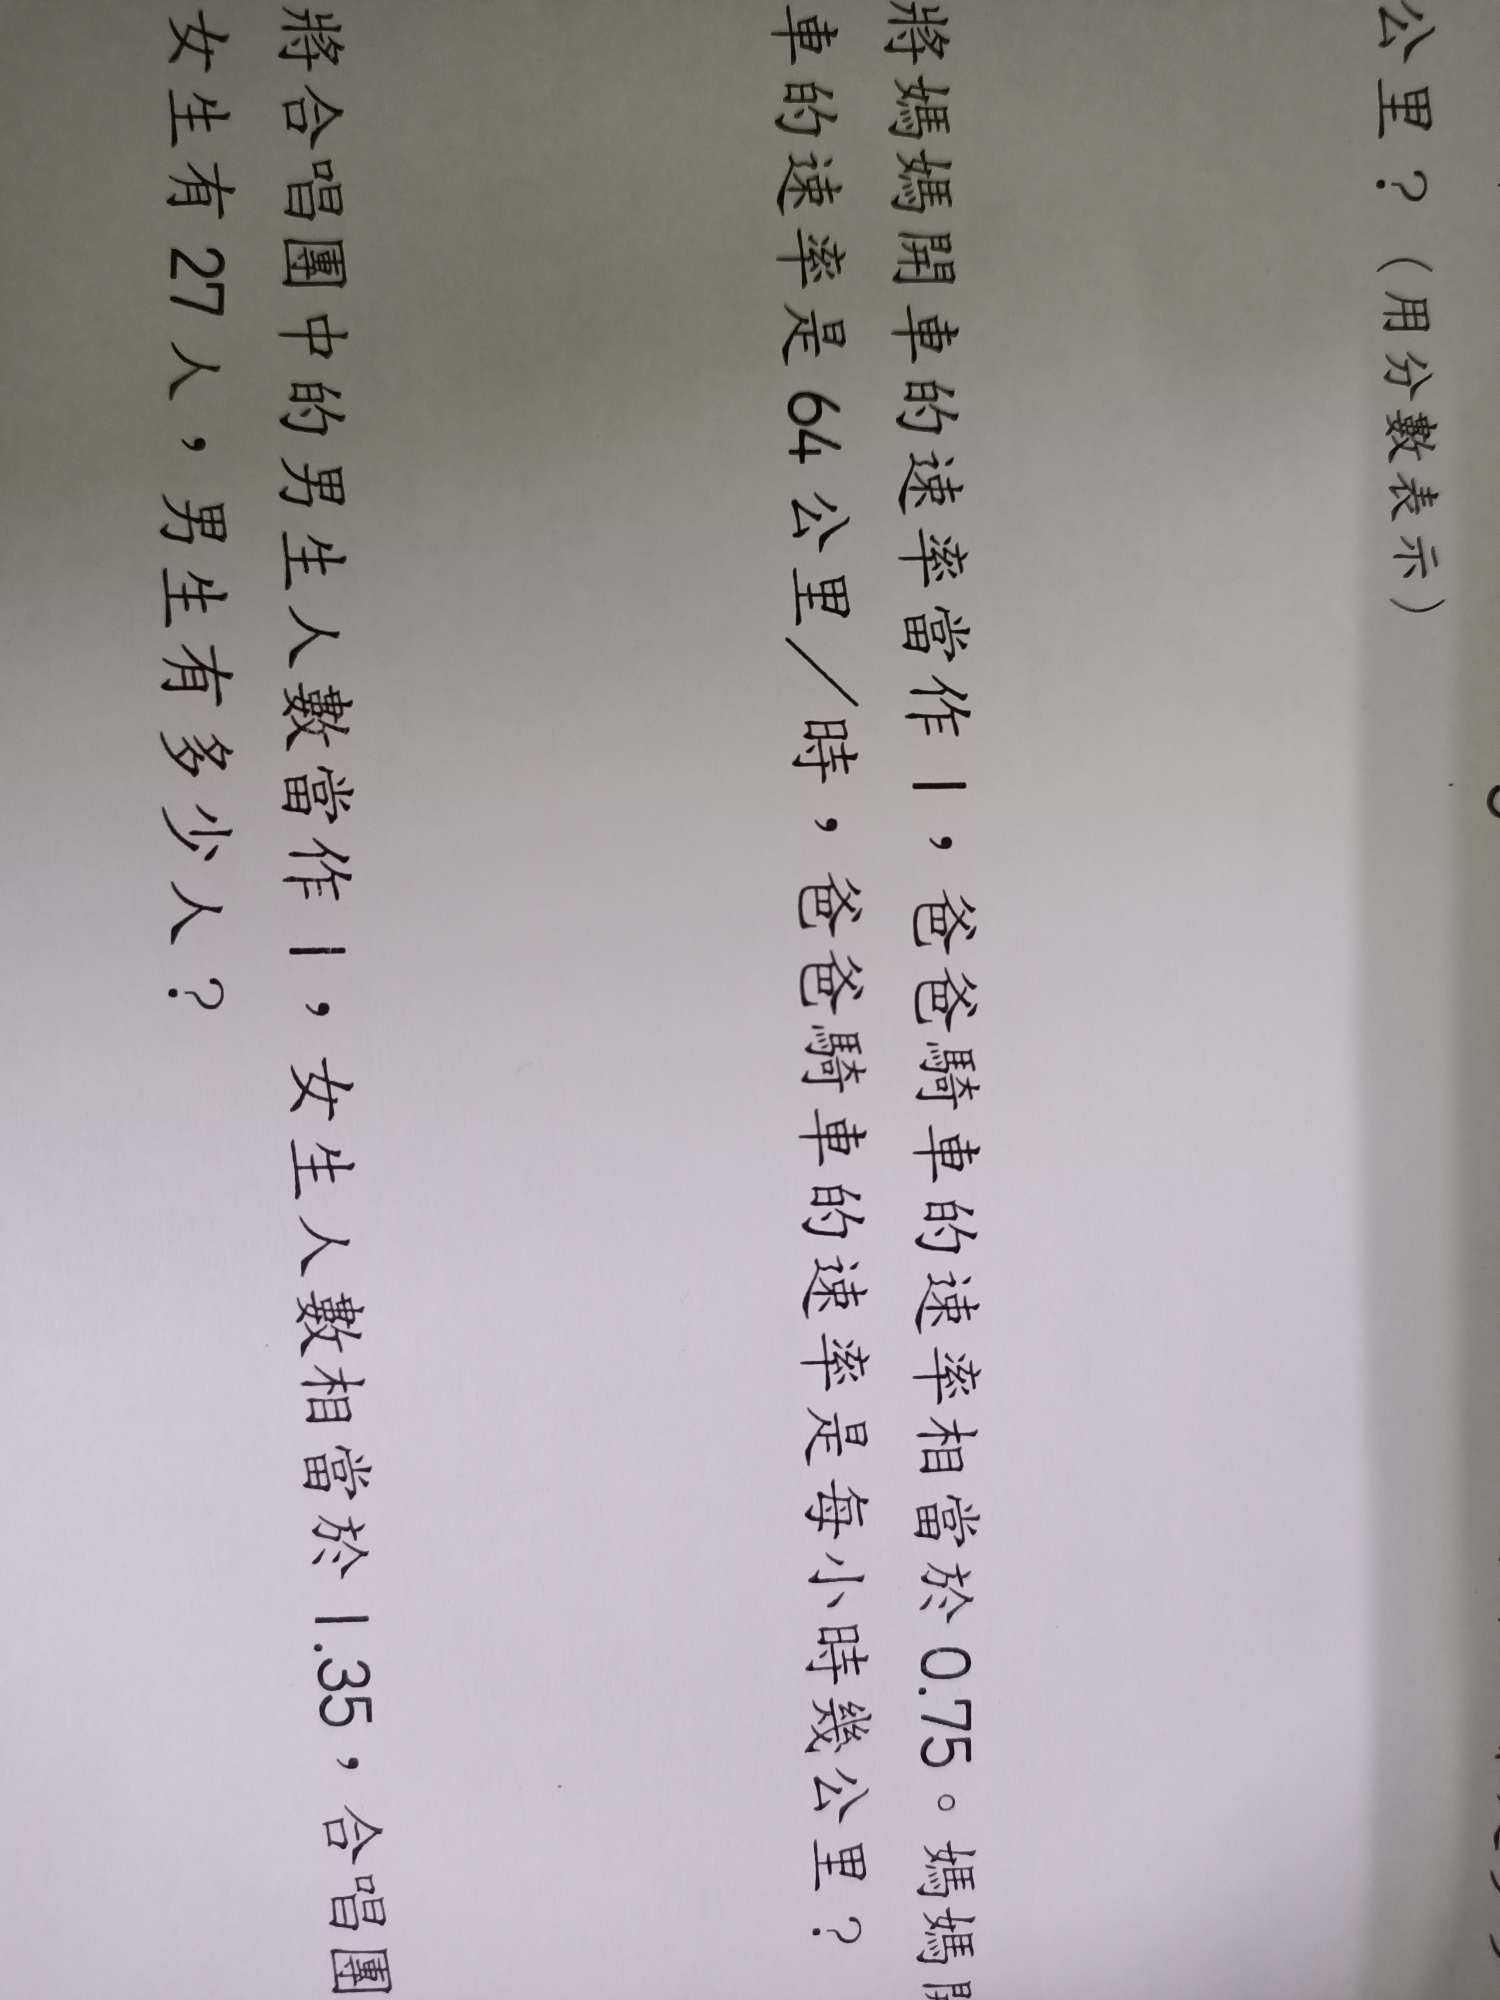 公里？（用分數表示）
將媽媽開車的速率當作1，爸爸騎車的速率相當於0.75。媽媽開
車的速率是64公里／時，爸爸騎車的速率是每小時幾公里？
將合唱團中的男生人數當作1，女生人數相當於1.35，合唱團
女生有27人，男生有多少人？